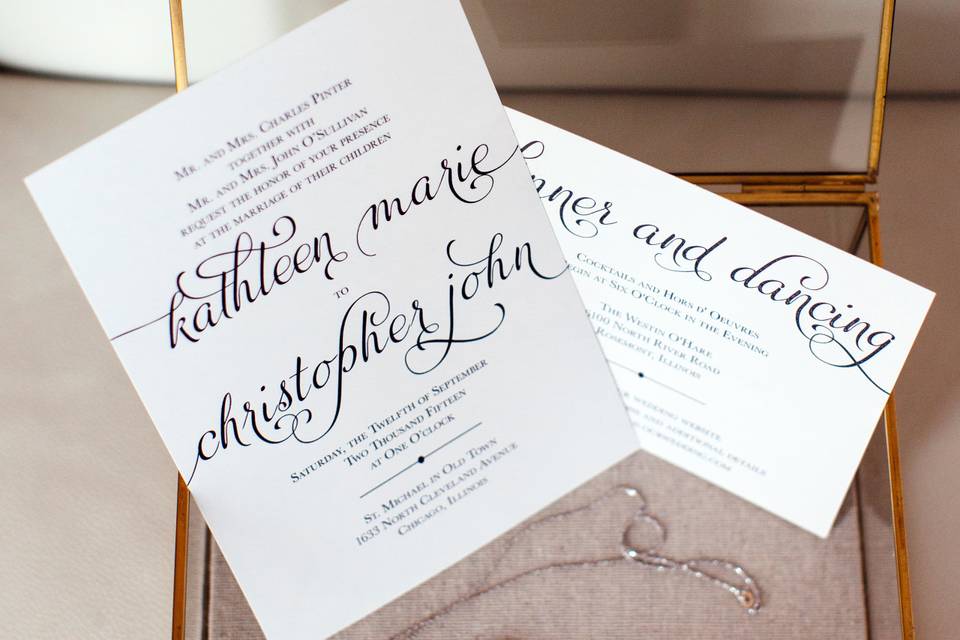 Mr. and Mrs. Charles Pinter
together with
Mr. and Mrs. John O'Sullivan
request the honor of your presence
at the marriage of their children
kathleen marie
to
christopher john
Saturday, the Twelfth of September
Two Thousand Fifteen
at One O'Clock
St. Michael in Old Town
1633 North Cleveland Avenue
Chicago, Illinois
nner and dancing
Cocktails and Hors d' Oeuvres
egin at Six O'Clock in the Evening
The Westin O'Hare
6100 North River Road
Rosemont, Illinois
wedding website
and additional details